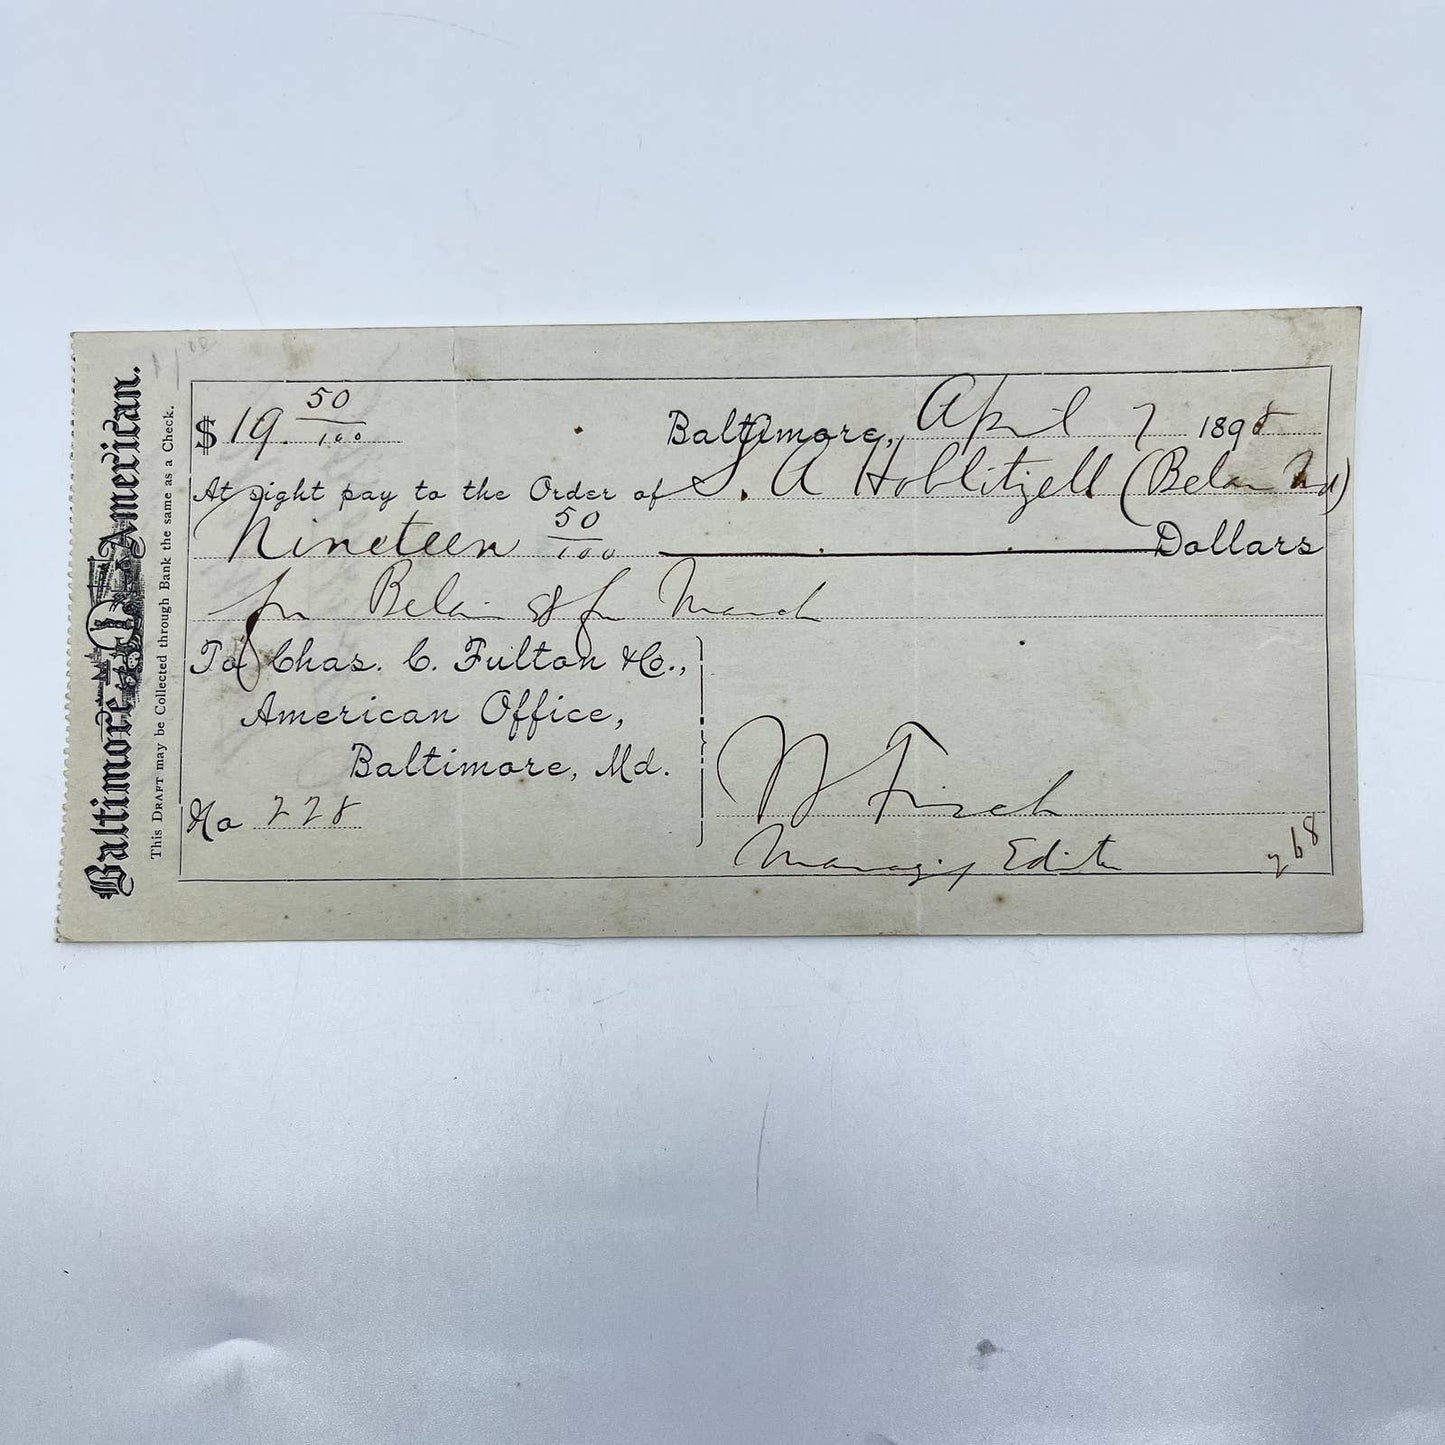 Baltimore American.
This DRAFT may be Collected through Bank the same as a Check.
$ 19. 50/100
Baltimore, April 7 1898
At sight pay to the Order of S. A Hoblitzell (Belair Md)
Nineteen 50/100 Dollars
for Belair for March
To Chas. C. Fulton & Co.,
American Office,
Baltimore, Md.
No 228
Managing Editor
268